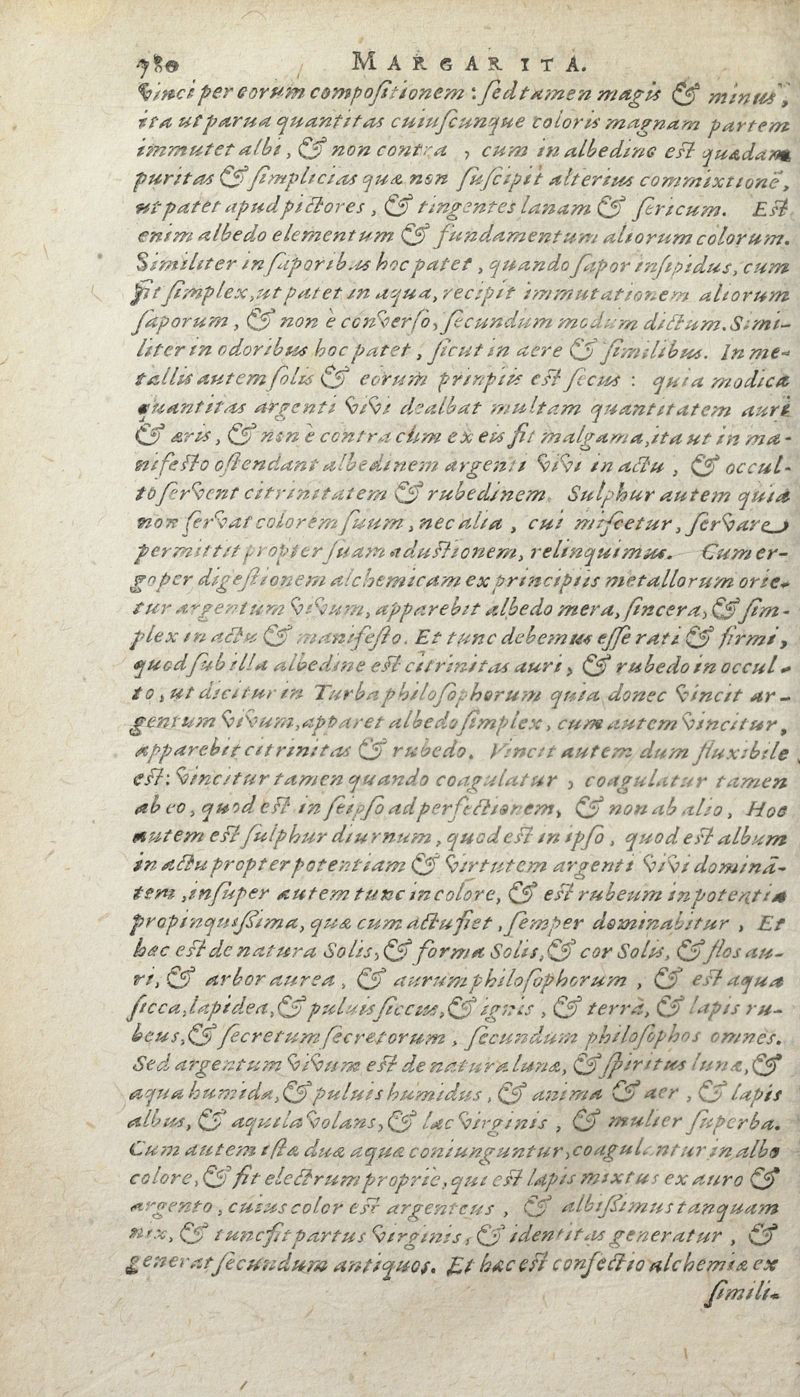 780 MARGARITA.
vinci per eorum compositionem : sed tamen magis & minus,
ita ut parua quantitas cuiuscunque coloris magnam partem
immutet albi, & non contra, cum in albedine est quædam
puritas & simplicitas quæ non suscipit alterius commixtionē,
ut patet apud pictores, & tingentes lanam & sericum. Est
enim albedo elementum & fundamentum aliorum colorum.
Similiter in saporibus hoc patet, quando sapor insipidus, cum
sit simplex, ut patet in aqua, recipit immutationem aliorum
saporum, & non è converso, secundum modum dictum. Simi-
liter in odoribus hoc patet, sicut in aere & similibus. In me-
tallis autem solis & eorum prinpiis est secus : quia modica
quantitas argenti vivi dealbat multam quantitatem auri
& æris, & non è contra cùm ex eis fit malgama, ita ut in ma-
nifesto ostendant albedinem argenti vivi in actu, & occul-
tò servent citrinitatem & rubedinem. Sulphur autem quia
non servat colorem suum, nec alia, cui miscetur, servare
permittit propter suam adustionem, relinquimus. Cum er-
go per digestionem alchemicam ex principiis metallorum orie-
tur argentum vivum, apparebit albedo mera, sincera, & sim-
plex in actu & manifesto. Et tunc debemus esse rati & firmi,
quod sub illa albedine est citrinitas auri, & rubedo in occul-
to, ut dicitur in Turba philosophorum quia donec vincit ar-
gentum vivum, apparet albedo simplex, cum autem vincitur,
apparebit citrinitas & rubedo. Vincit autem dum fluxibile
est: vincitur tamen quando coagulatur, coagulatur tamen
ab eo, quod est in seipso ad perfectionem, & non ab alio, Hoc
autem est sulphur diurnum, quod est in ipso, quod est album
in actu propter potentiam & virtutem argenti vivi dominā-
tem, insuper autem tunc in colore, & est rubeum in potentia
propinquissima, quæ cum actu fiet, semper dominabitur, Et
hæc est de natura Solis, & forma Solis, & cor Solis, & flos au-
ri, & arbor aurea, & aurum philosophorum, & est aqua
sicca, lapidea, & puluis siccus, & ignis, & terra, & lapis ru-
beus, & secretum secretorum, secundum philosophos omnes.
Sed argentum vivum est de natura lunæ, & spiritus lunæ, &
aqua humida, & puluis humidus, & anima & aer, & lapis
albus, & aquila volans, & lac virginis, & mulier superba.
Cum autem istæ duæ aquæ coniunguntur, coagulantur in albo
colore, & fit electrum propriè, qui est lapis mixtus ex auro &
argento, cuius color est argenteus, & albissimus tanquam
nix, & tunc fit partus virginis, & identitas generatur, &
generat secundum antiquos. Et hæc est confectio alchemiæ ex
simili-